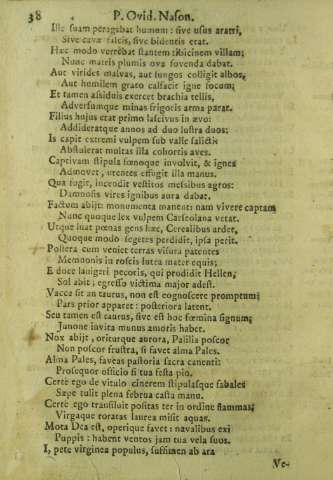 38 P. Ovid. Nason.
Ille suam peragebat humum: sive usus aratri,
Sive cavæ falcis, sive bidentis erat.
Hæc modo verrebat stantem tibicine villam;
Nunc matris plumis ova fovenda dabat.
Aut virides malvas, aut fungos colligit albos,
Aut humilem grato calfacit igne focum;
Et tamen assiduis exercet brachia tellis,
Adversumque minas frigoris arma parat.
Filius hujus erat primo lascivus in ævo:
Addideratque annos ad duo lustra duos:
Is capit extremi vulpem sub valle salicti:
Abstulerat multas illa cohortis aves.
Captivam stipula fœnoque involvit, & ignes
Admovet, urentes effugit illa manus.
Qua fugit, incendit vestitos messibus agros:
Damnosis vires ignibus aura dabat.
Factum abijt: monumenta manent: nam vivere captam
Nunc quoque lex vulpem Carseolana vetat.
Utque luat pœnas gens hæc, Cerealibus ardet,
Quoque modo segetes perdidit, ipsa perit.
Postera cum veniet terras visura patentes
Memnonis in roseis lutea mater equis;
E duce lanigeri pecoris, qui prodidit Hellen,
Sol abit; egresso victima major adest.
Vacca sit an taurus, non est cognoscere promptum;
Pars prior apparet: posteriora latent.
Seu tamen est taurus, sive est hoc fœmina signum;
Junone invita munus amoris habet.
Nox abijt, oriturque aurora, Palilia poscor
Non poscor frustra, si favet alma Pales.
Alma Pales, faveas pastoria sacra canenti:
Prosequor officio si tua festa pio.
Certè ego de vitulo cinerem stipulasque fabales
Sæpe tulit plena februa casta manu.
Certè ego transiluit positas ter in ordine flammas;
Virgaque roratas laurea misit aquas.
Mota Dea est, operique favet: navalibus exi
Puppis: habent ventos jam tua vela suos.
I, pete virginea populus, suffimen ab ara
Ve-